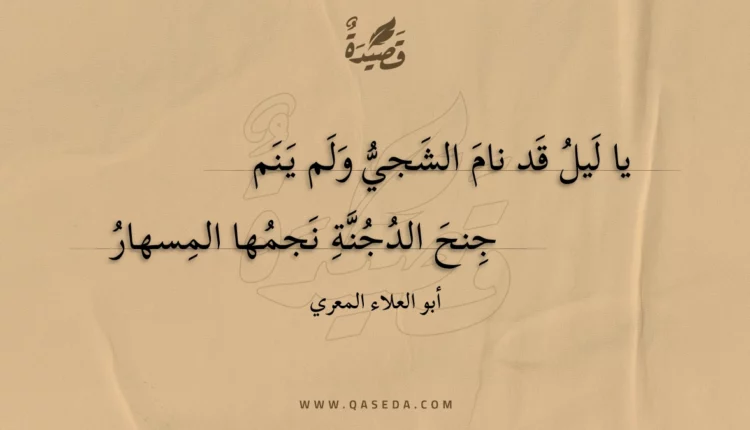 قَصِيْدَةٌ
يا لَيلُ قَد نامَ الشَجيُّ وَلَم يَنَم
جِنحَ الدُجُنَّةِ نَجمُها المِسهارُ
أبو العلاء المعري
WWW.QASEDA.COM